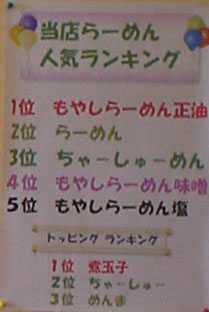 当店らーめん
人気ランキング
1位 もやしらーめん正油
2位 らーめん
3位 ちゃーしゅーめん
4位 もやしらーめん味噌
5位 もやしらーめん塩
トッピング ランキング
1位 煮玉子
2位 ちゃーしゅー
3位 めんま